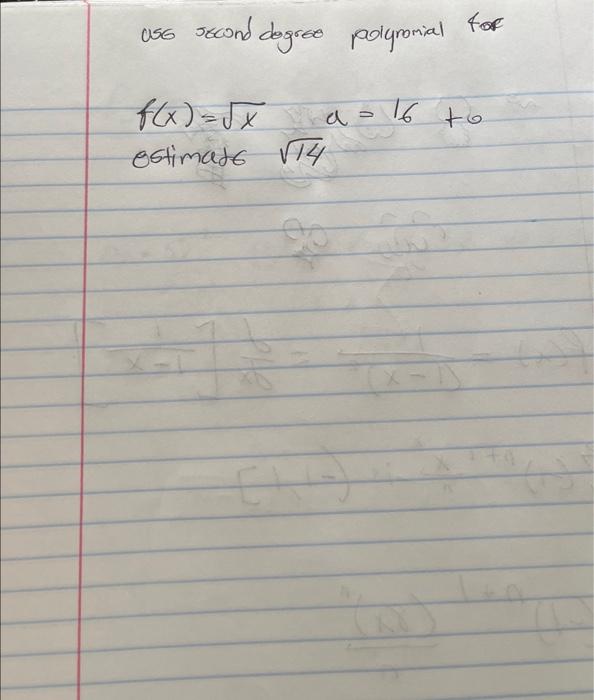 use second degree polynomial for
f(x) = √x a = 16 to
estimate √14